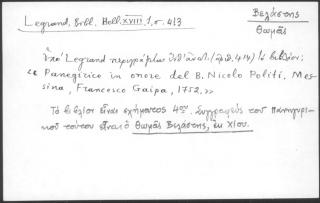 Legrand, Bibl. Hell. XVIII 1, σ. 413
Βελάστης
Θωμᾶς
Ὑπὸ Legrand περιγράφεται ὑπ' ἀριθ. (σελ. 414) τὸ βιβλίον:
« Panegirico in onore del B. Nicolo Politi, Mes-
sina, Francesco Gaipa, 1752.»
Τὸ βιβλίον εἶναι σχήματος 4ου. Συγγραφεὺς τοῦ Πανηγυρι-
κοῦ τούτου εἶναι ὁ Θωμᾶς Βελάστης, ἐκ Χίου.